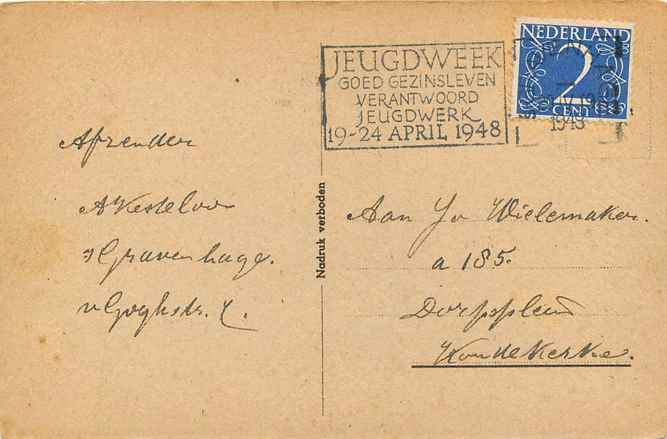 JEUGDWEEK
GOED GEZINSLEVEN
VERANTWOORD
JEUGDWERK
19-24 APRIL 1948
NEDERLAND
2
CENT
1948
Afzender
A Kesteloo
s Gravenhage.
v Goghstr.
Nadruk verboden
Aan Jo Wielemaker.
a 185.
Dorpsplein
Koudekerke.